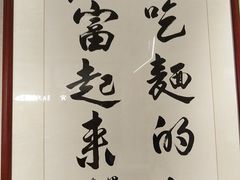 吃麵的
富起来